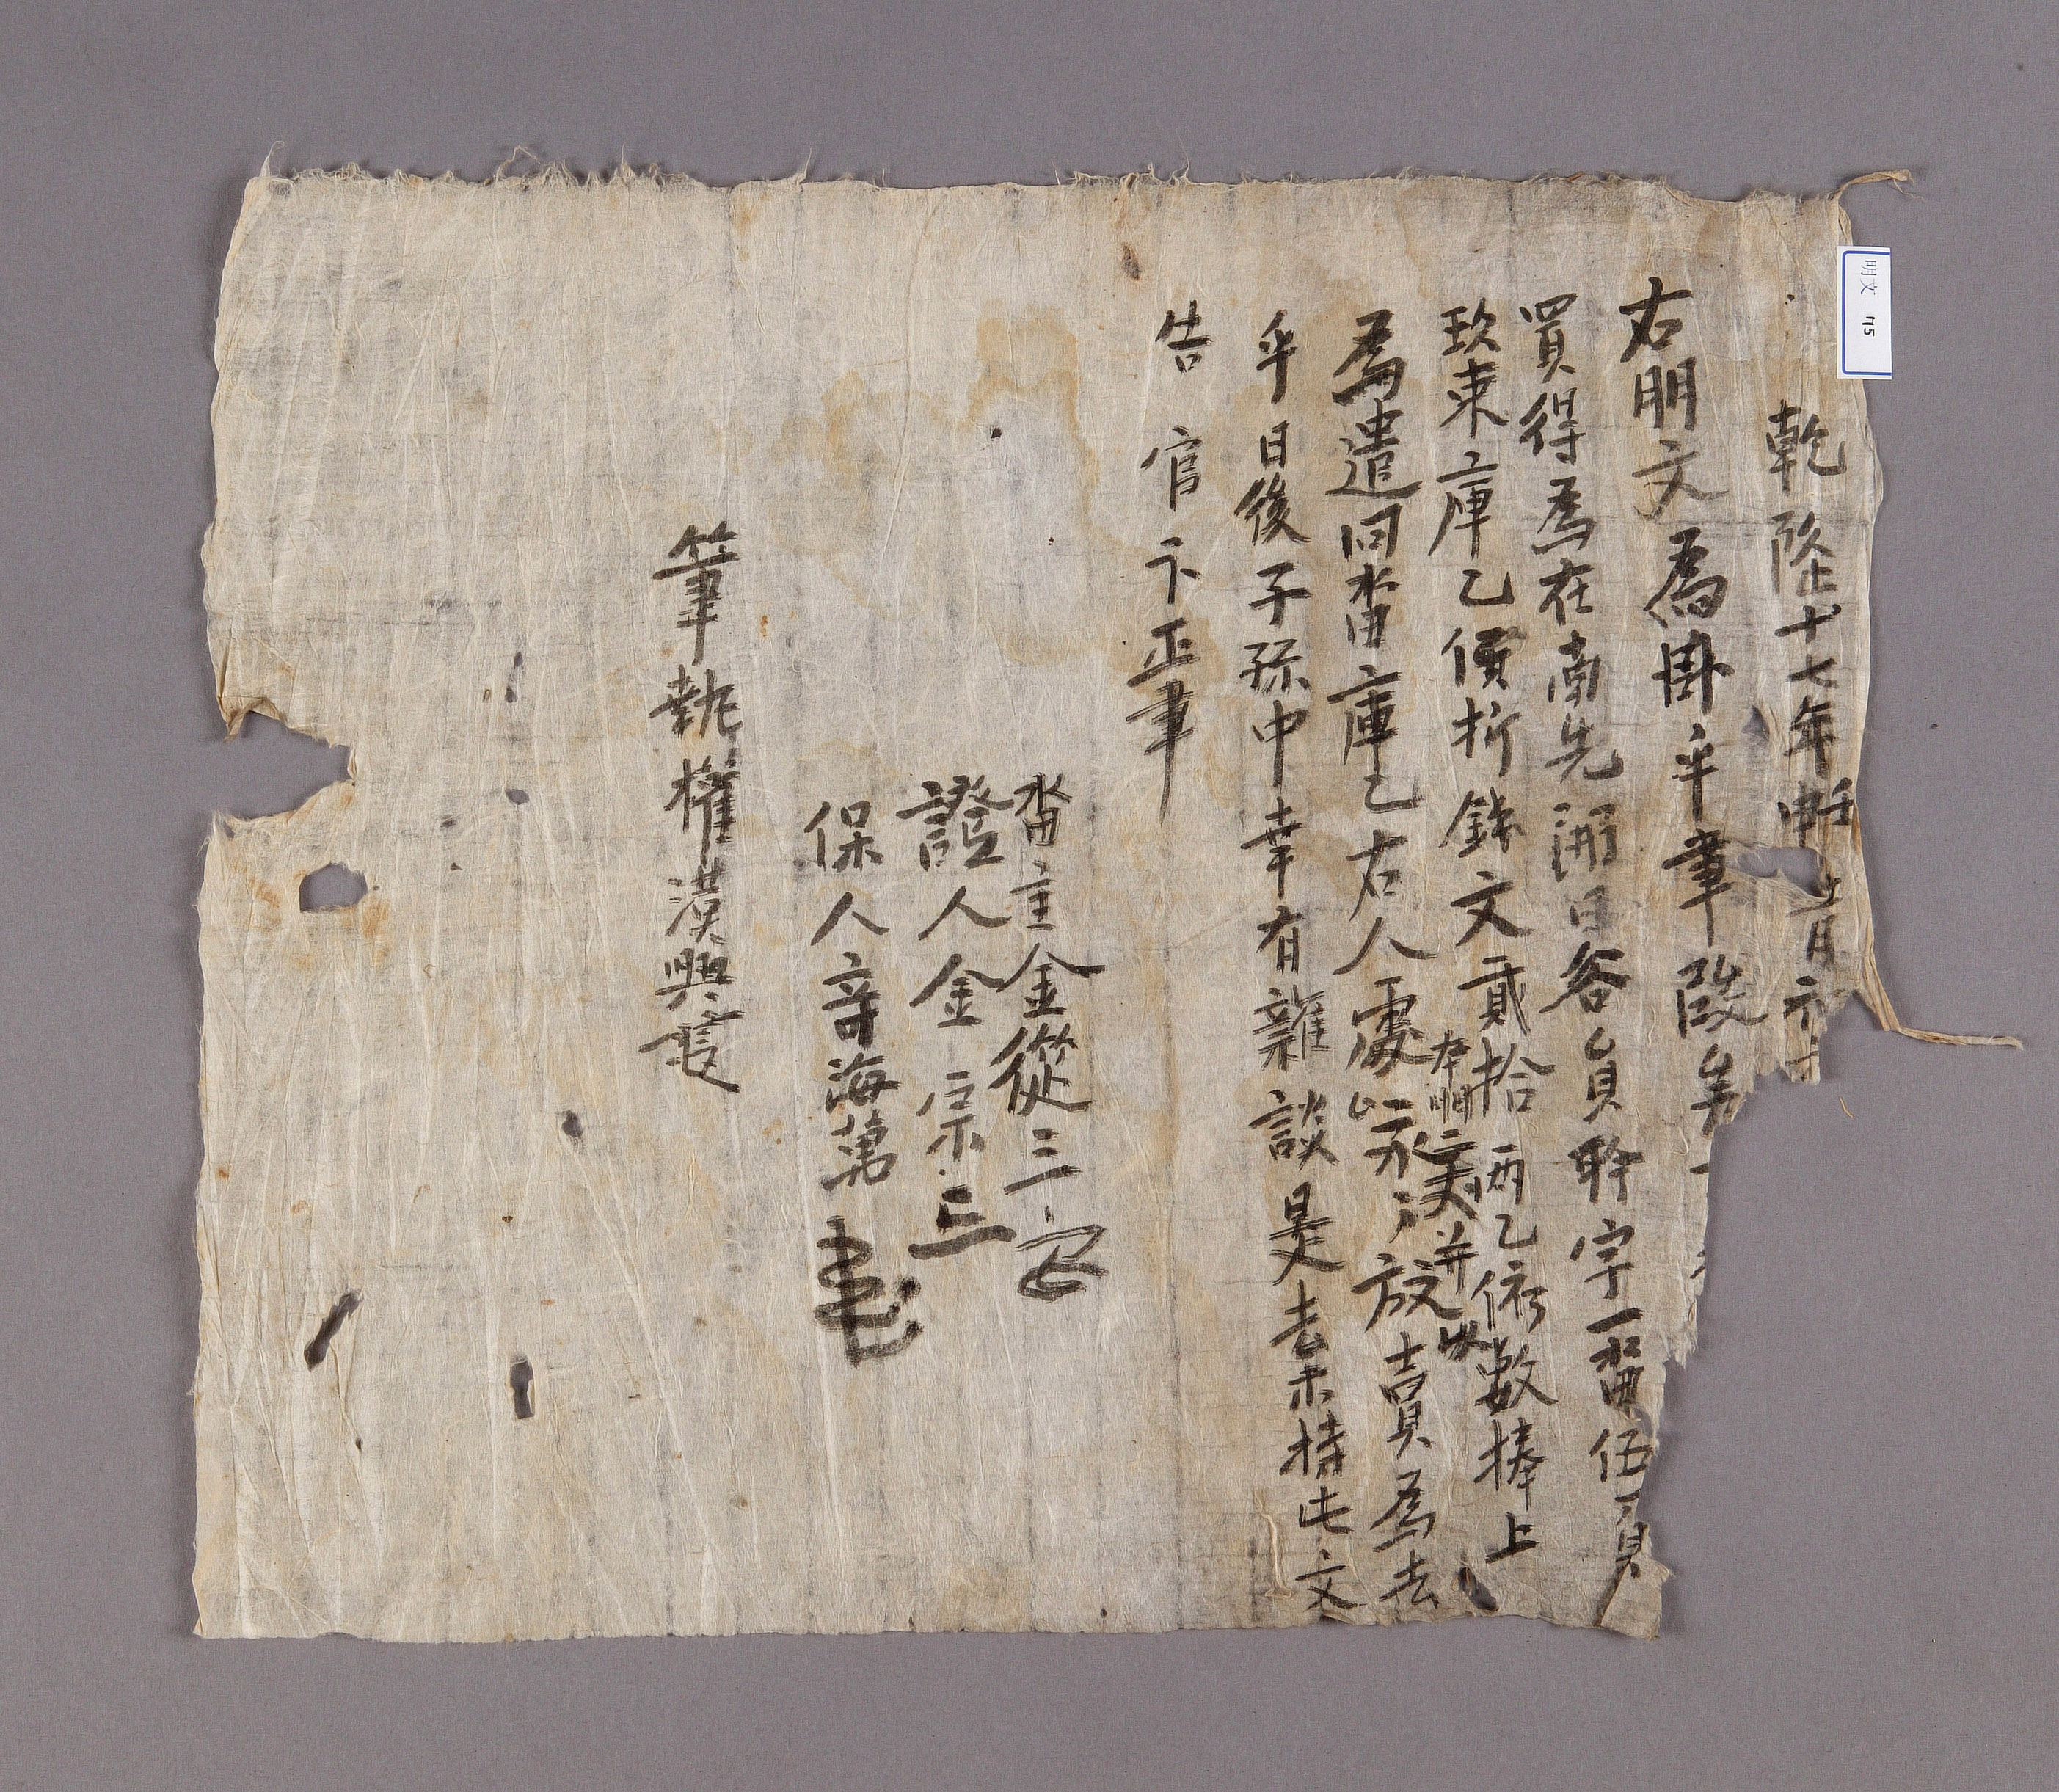 明文 75
乾隆十七年壬申 月 
右明文爲臥乎事段矣
買得爲在南先 員 字一畓伍 負
玖束庫乙價折錢文貳拾兩乙依數捧上
爲遣同畓庫乙右人處以永永放賣爲去
本明文幷以
乎日後子孫中幸有雜談是去等持此文
告官卞正事
畓主金從三
證人金宗三
保人 海萬
筆執權漢興